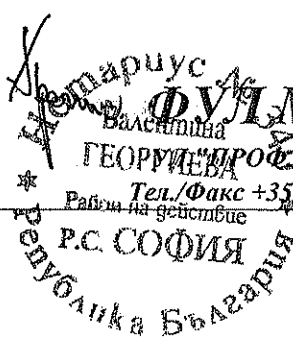 Нотариус №
ФУЛМ
Валентина
ГЕОРГИЕВА
УЛ. "ПРОФ.
Тел./Факс +35
Район на действие
Р.С. СОФИЯ
Република България